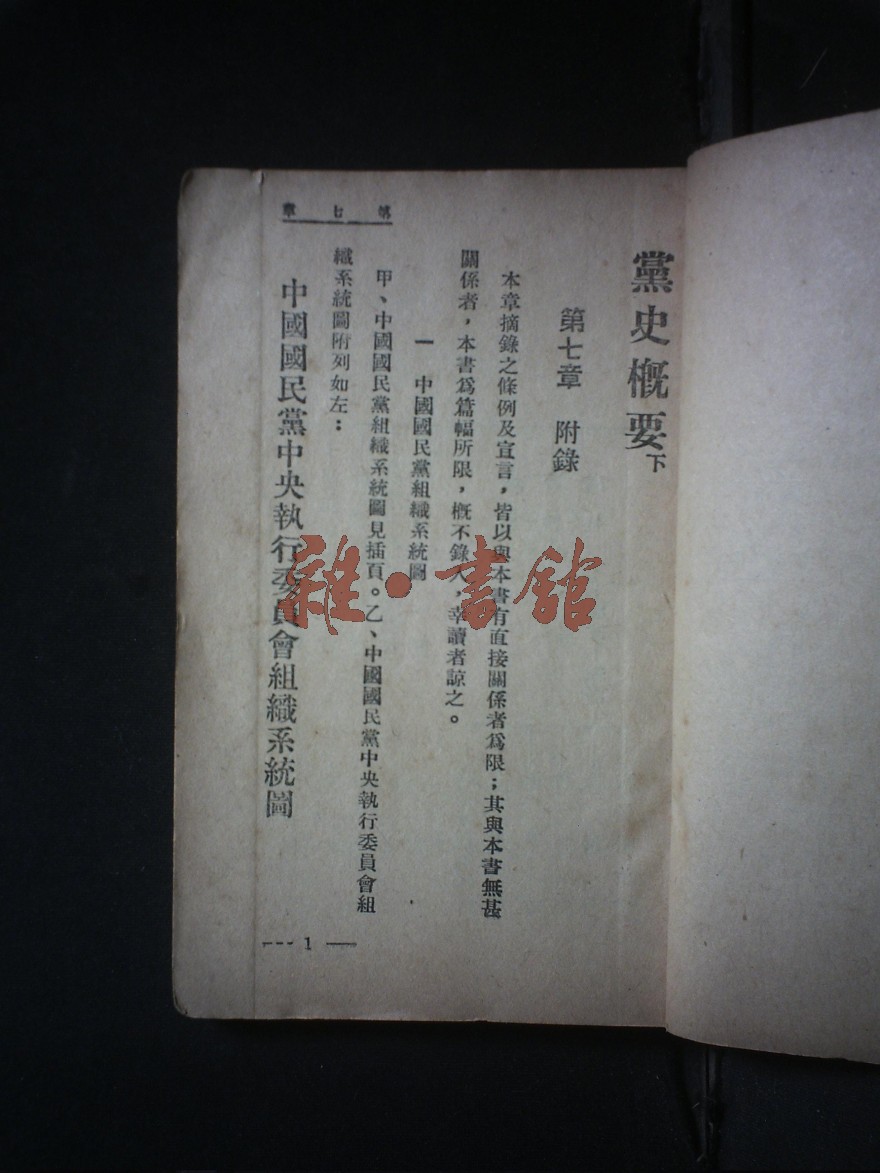 黨史概要下
第七章　附錄
本章摘錄之條例及宣言，皆以與本書有直接關係者爲限；其與本書無甚
關係者，本書爲篇幅所限，概不錄入，幸讀者諒之。
一　中國國民黨組織系統圖
甲、中國國民黨組織系統圖見插頁。乙、中國國民黨中央執行委員會組
織系統圖附列如左：
中國國民黨中央執行委員會組織系統圖
第七章
--- 1 ---
雜·書館